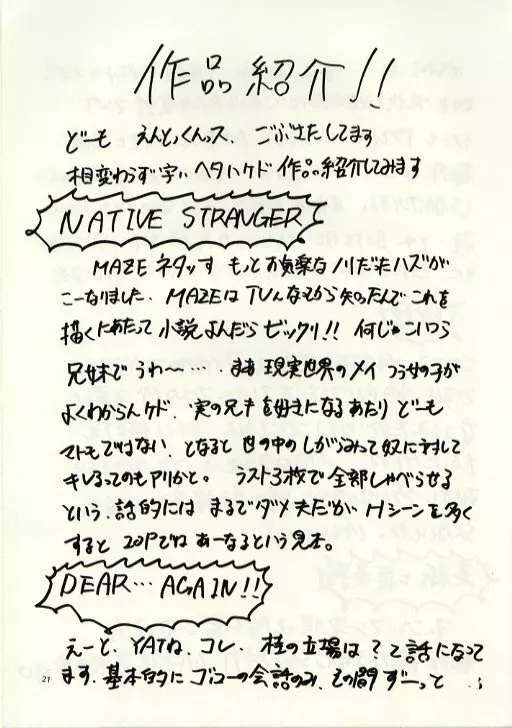 作品紹介!!
どーも えんとっくんス、ごぶさたしてます
相変わらず字ぃヘタいケド作品紹介してみます
NATIVE STRANGER
MAZEネタっす もっとお気楽なノリだったハズが
こーなりました、MAZEはTVんなてから知ったんで これを
描くにあたって 小説よんだら ビックリ!! 何じゃこいつら
兄妹で うわ〜〜… まぁ 現実世界のメイ つう女の子が
よくわからんケド、実の兄キを好きになるあたり どーも
マトモではない、となると 世の中のしがらみって奴に対して
キレるってのも アリかと。 ラスト3枚で全部しゃべらせる
という、話的には まるでダメ夫だが、Hシーンを多く
すると 20Pでは あーなるという見本。
DEAR… AGAIN!!
えーと、YATね、コレ、桂の立場は?と話になって
ます、基本的に ゴローの会話のみ、その間 ずーっと
21